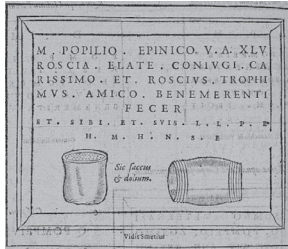 M. POPILIO. EPINICO. V. A. XLV
ROSCIA. ELATE. CONIVGI. CA
RISSIMO. ET. ROSCIVS. TROPHI
MVS. AMICO. BENEMERENTI
FECER
ET. SIBI. ET. SVIS. L. L. P. E
H. M. H. N. S. E
Sic saccus
& dolium.
Vidit Smetius